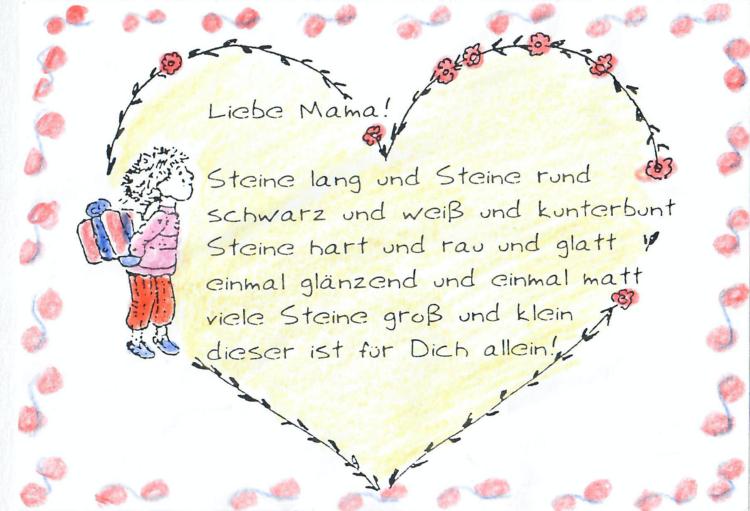 Liebe Mama!
Steine lang und Steine rund
schwarz und weiß und kunterbunt
Steine hart und rau und glatt
einmal glänzend und einmal matt
viele Steine groß und klein
dieser ist für Dich allein!